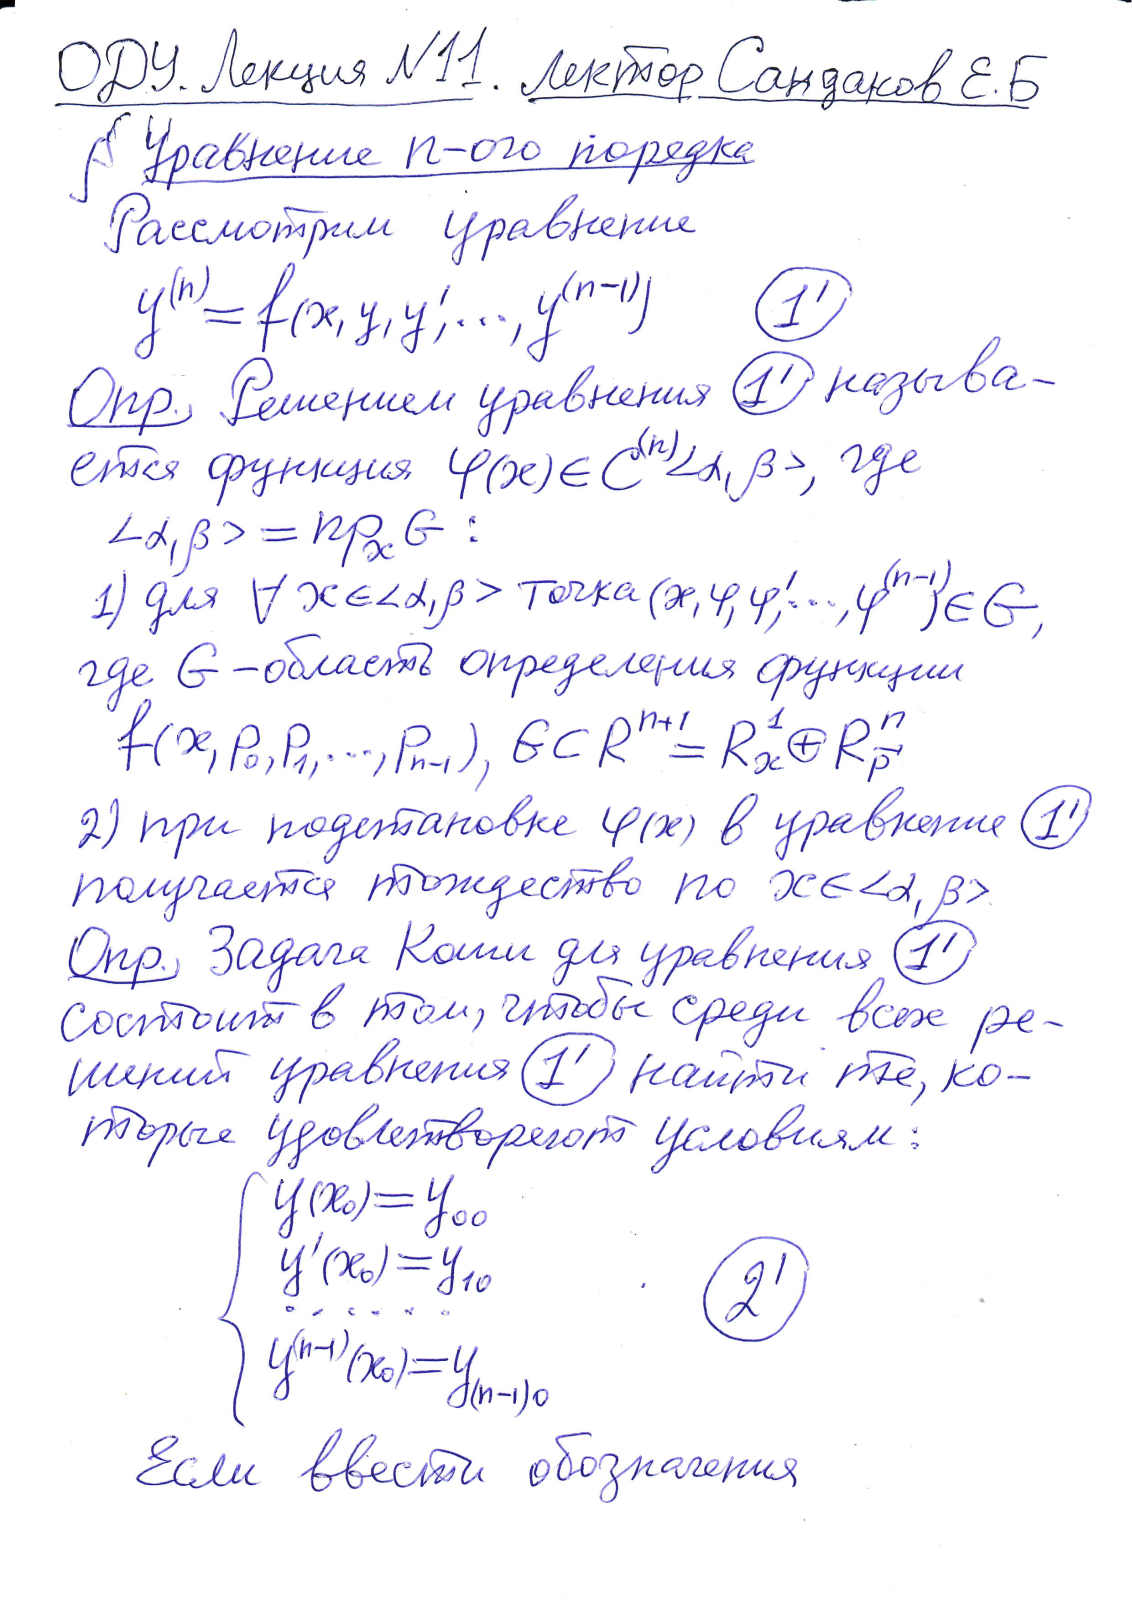 ОДУ. Лекция N11. Лектор Сандаков Е.Б
§ Уравнение n-ого порядка
Рассмотрим уравнение
y⁽ⁿ⁾ = f(x, y, y′, ..., y⁽ⁿ⁻¹⁾) (1′)
Опр. Решением уравнения (1′) называ-
ется функция φ(x) ∈ C⁽ⁿ⁾<α, β>, где
<α, β> = пр_x G :
1) для ∀ x ∈ <α, β> точка (x, φ, φ′, ..., φ⁽ⁿ⁻¹⁾) ∈ G,
где G – область определения функции
f(x, p₀, p₁, ..., pₙ₋₁), G ⊂ Rⁿ⁺¹ = R¹_x ⊕ Rⁿ_p⃗
2) при подстановке φ(x) в уравнение (1′)
получается тождество по x ∈ <α, β>
Опр. Задача Коши для уравнения (1′)
состоит в том, чтобы среди всех ре-
шений уравнения (1′) найти те, ко-
торые удовлетворяют условиям:
{ y(x₀) = y₀₀
y′(x₀) = y₁₀
. . . . . .
y⁽ⁿ⁻¹⁾(x₀) = y₍ₙ₋₁₎₀ (2′)
Если ввести обозначения